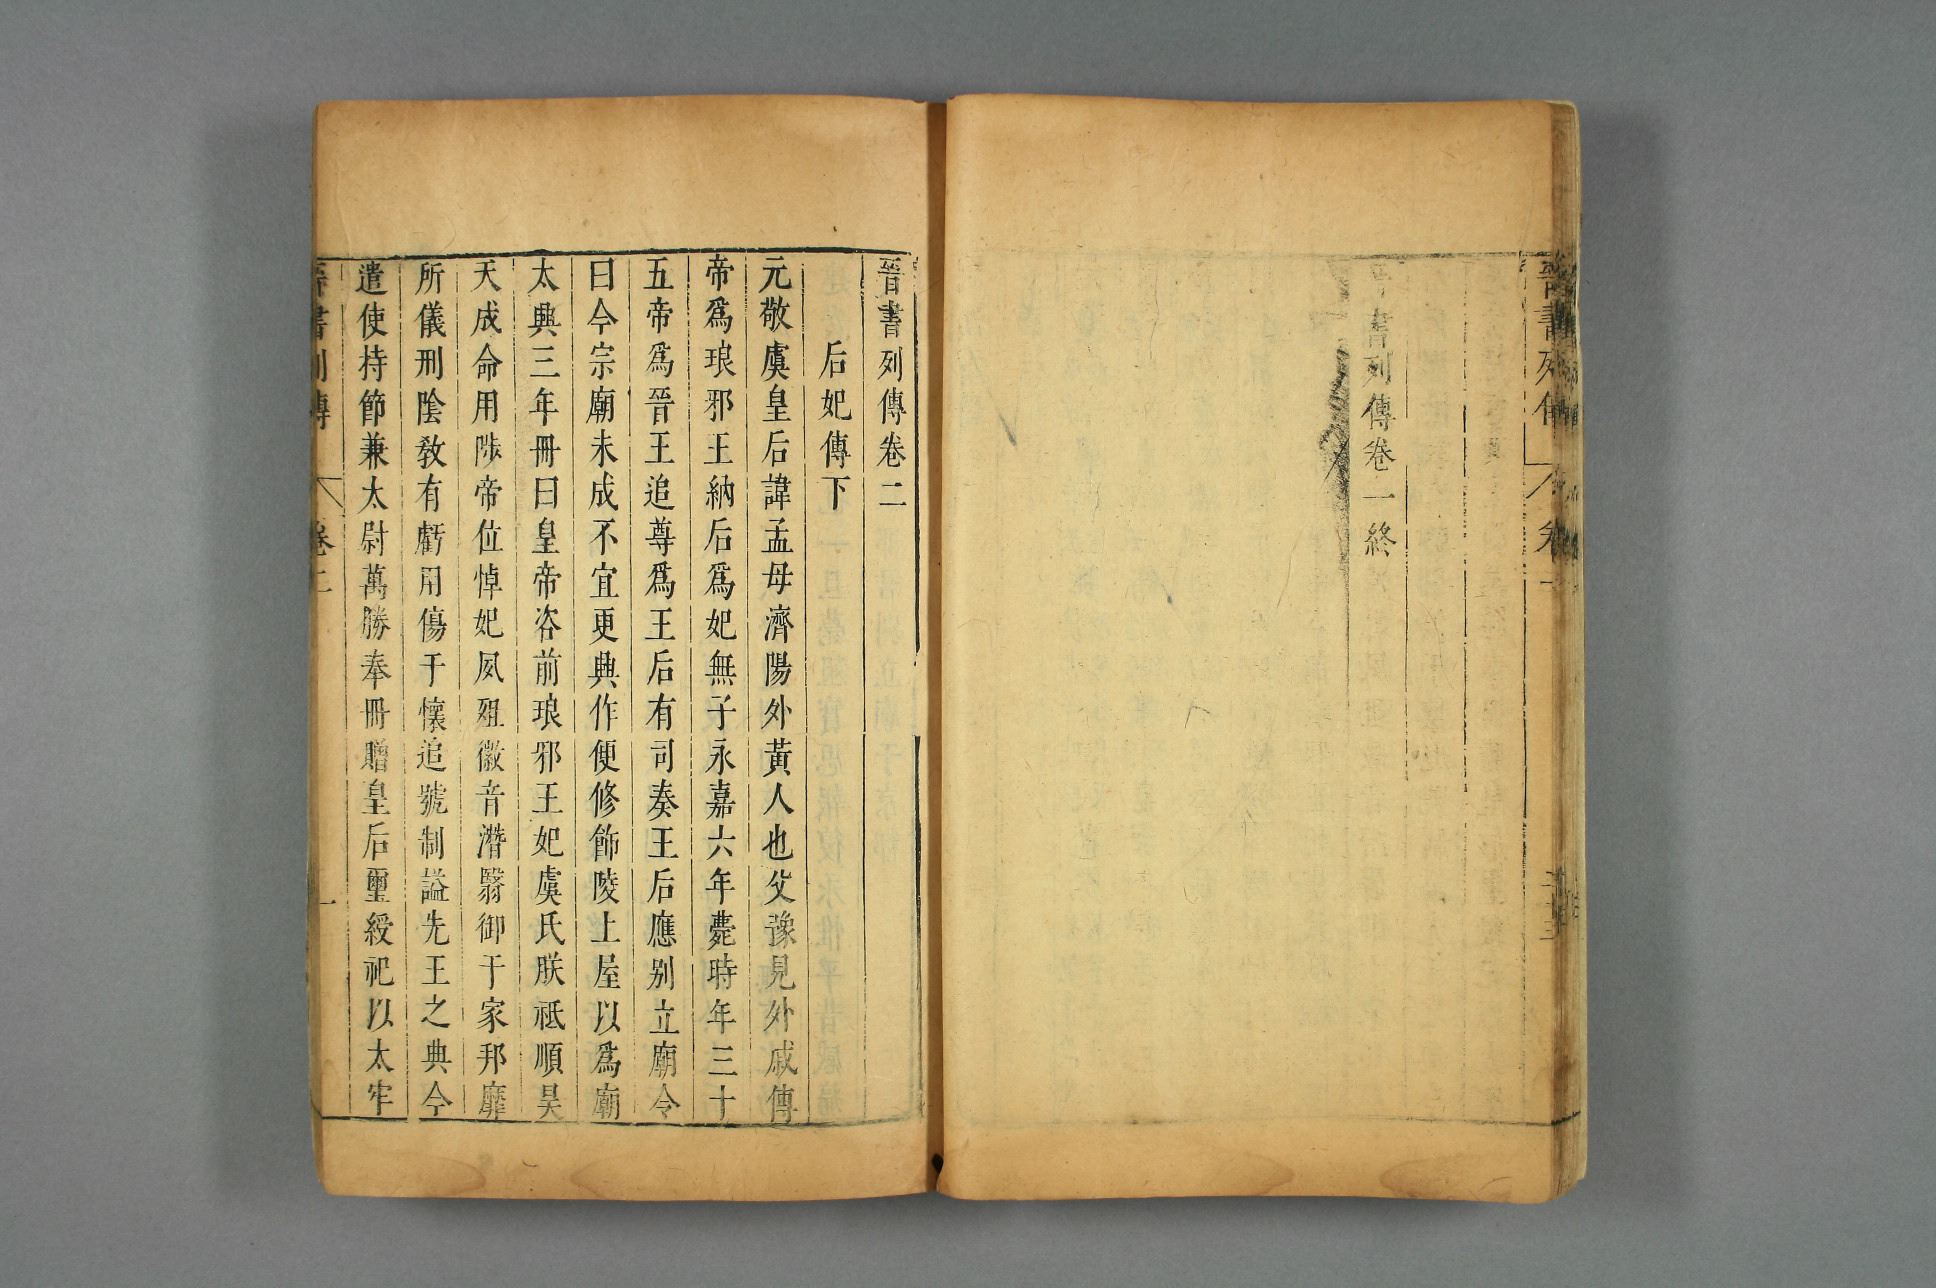 晉書列傳
卷一
晉書列傳卷一終
晉書列傳卷二
后妃傳下
元敬虞皇后諱孟母濟陽外黃人也父豫見外戚傳
帝爲琅邪王納后爲妃無子永嘉六年薨時年三十
五帝爲晉王追尊爲王后有司奏王后應別立廟令
曰今宗廟未成不宜更興作便修飾陵上屋以爲廟
太興三年冊曰皇帝咨前琅邪王妃虞氏朕祗順昊
天成命用陟帝位悼妃夙殂徽音潛翳御于家邦靡
所儀刑陰敎有虧用傷于懷追號制謚先王之典今
遣使持節兼太尉萬勝奉冊贈皇后璽綬祀以太牢
晉書列傳
卷二
一